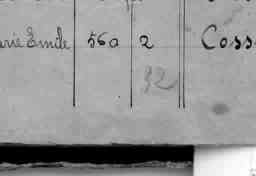 arie Emile 56a 2 Coss
32